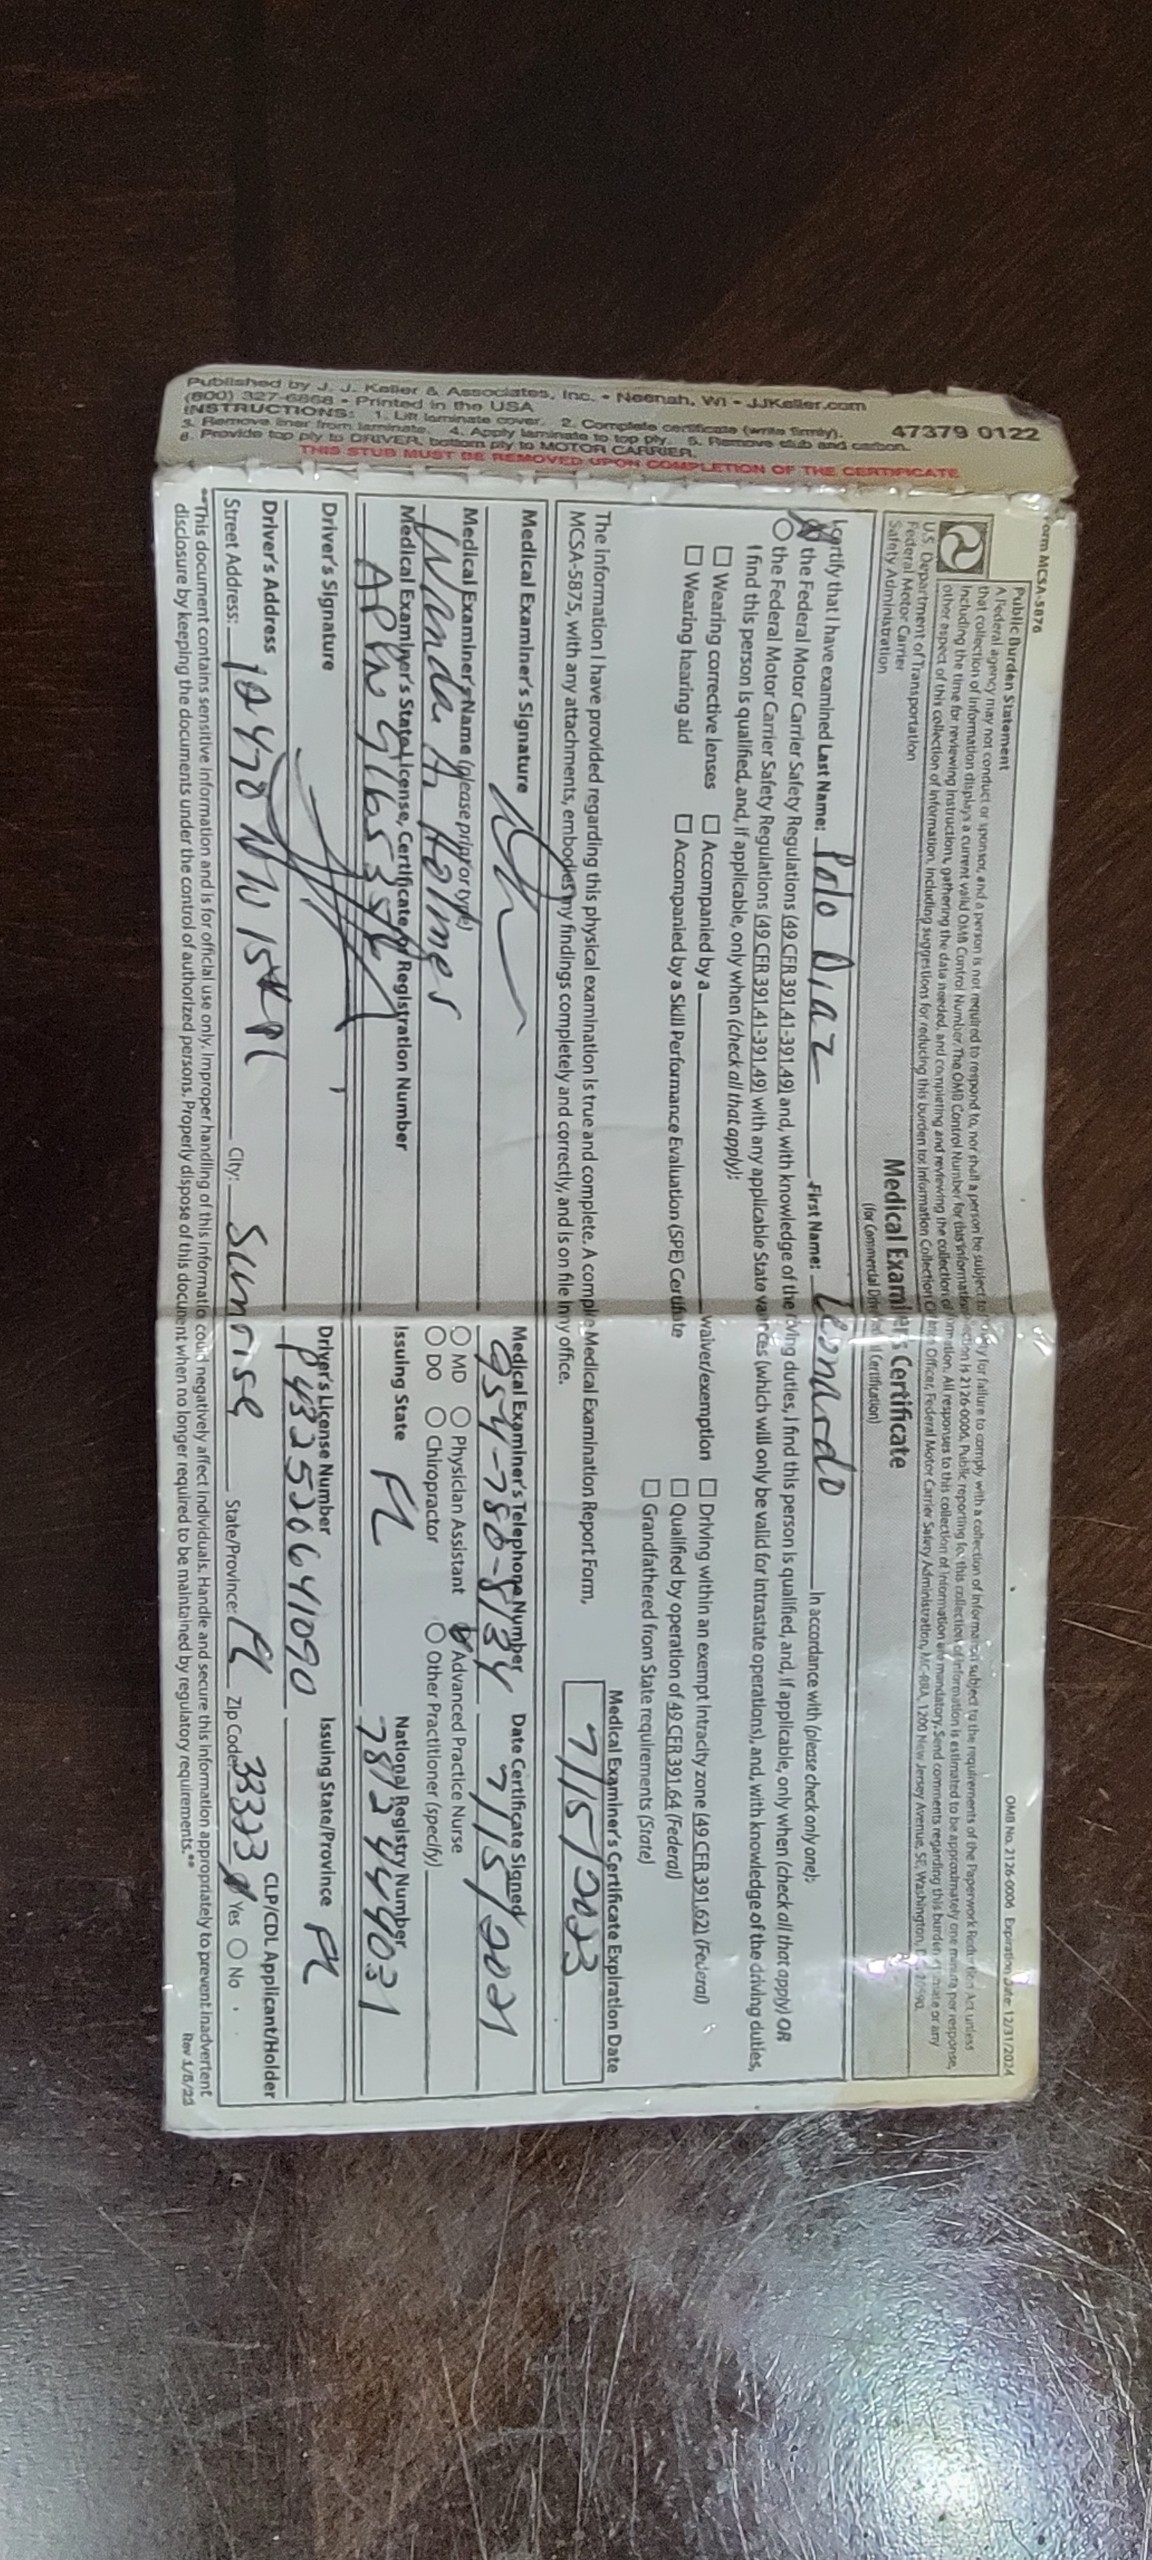 Published by J. J. Keller & Associates, Inc. • Neenah, WI • JJKeller.com
(800) 327-6868 • Printed in the USA
47379 0122
INSTRUCTIONS: 1. Lift laminate cover. 2. Complete certificate (write firmly).
3. Remove liner from laminate. 4. Apply laminate to top ply. 5. Remove stub and carbon.
6. Provide top ply to DRIVER, bottom ply to MOTOR CARRIER.
THIS STUB MUST BE REMOVED UPON COMPLETION OF THE CERTIFICATE
Form MCSA-5876
OMB No. 2126-0006 Expiration Date: 12/31/2024
Public Burden Statement
A Federal agency may not conduct or sponsor, and a person is not required to respond to, nor shall a person be subject to a penalty for failure to comply with a collection of information subject to the requirements of the Paperwork Reduction Act unless
that collection of information displays a current valid OMB Control Number. The OMB Control Number for this information collection is 2126-0006. Public reporting for this collection of information is estimated to be approximately one minute per response,
including the time for reviewing instructions, gathering the data needed, and completing and reviewing the collection of information. All responses to this collection of information are mandatory. Send comments regarding this burden estimate or any
other aspect of this collection of information, including suggestions for reducing this burden to: Information Collection Officer, Federal Motor Carrier Safety Administration, MC-RRA, 1200 New Jersey Avenue, SE, Washington,
U.S. Department of Transportation
Federal Motor Carrier
Safety Administration
Medical Examiner's Certificate
(for Commercial Driver Medical Certification)
I certify that I have examined Last Name: Polo Diaz First Name: Leonardo in accordance with (please check only one):
the Federal Motor Carrier Safety Regulations (49 CFR 391.41-391.49) and, with knowledge of the driving duties, I find this person is qualified, and, if applicable, only when (check all that apply) OR
the Federal Motor Carrier Safety Regulations (49 CFR 391.41-391.49) with any applicable State variances (which will only be valid for intrastate operations), and, with knowledge of the driving duties,
I find this person is qualified, and, if applicable, only when (check all that apply):
Wearing corrective lenses Accompanied by a waiver/exemption Driving within an exempt intracity zone (49 CFR 391.62) (Federal)
Wearing hearing aid Accompanied by a Skill Performance Evaluation (SPE) Certificate Qualified by operation of 49 CFR 391.64 (Federal)
Grandfathered from State requirements (State)
The information I have provided regarding this physical examination is true and complete. A complete Medical Examination Report Form,
MCSA-5875, with any attachments, embodies my findings completely and correctly, and is on file in my office.
Medical Examiner's Certificate Expiration Date
7/15/2023
Medical Examiner's Signature
Medical Examiner's Telephone Number
954-780-8134
Date Certificate Signed
7/15/2021
Medical Examiner's Name (please print or type)
Wanda A Holmes
MD Physician Assistant Advanced Practice Nurse
DO Chiropractor Other Practitioner (specify)
Medical Examiner's State License, Certificate, or Registration Number
Issuing State
FL
National Registry Number
7812444031
Driver's Signature
Driver's License Number
P432520641090
Issuing State/Province
FL
Driver's Address
CLP/CDL Applicant/Holder
Street Address: City: Sunrise State/Province: FL Zip Code: 33323 Yes No
**This document contains sensitive information and is for official use only. Improper handling of this information could negatively affect individuals. Handle and secure this information appropriately to prevent inadvertent
disclosure by keeping the documents under the control of authorized persons. Properly dispose of this document when no longer required to be maintained by regulatory requirements.**
Rev 1/5/22